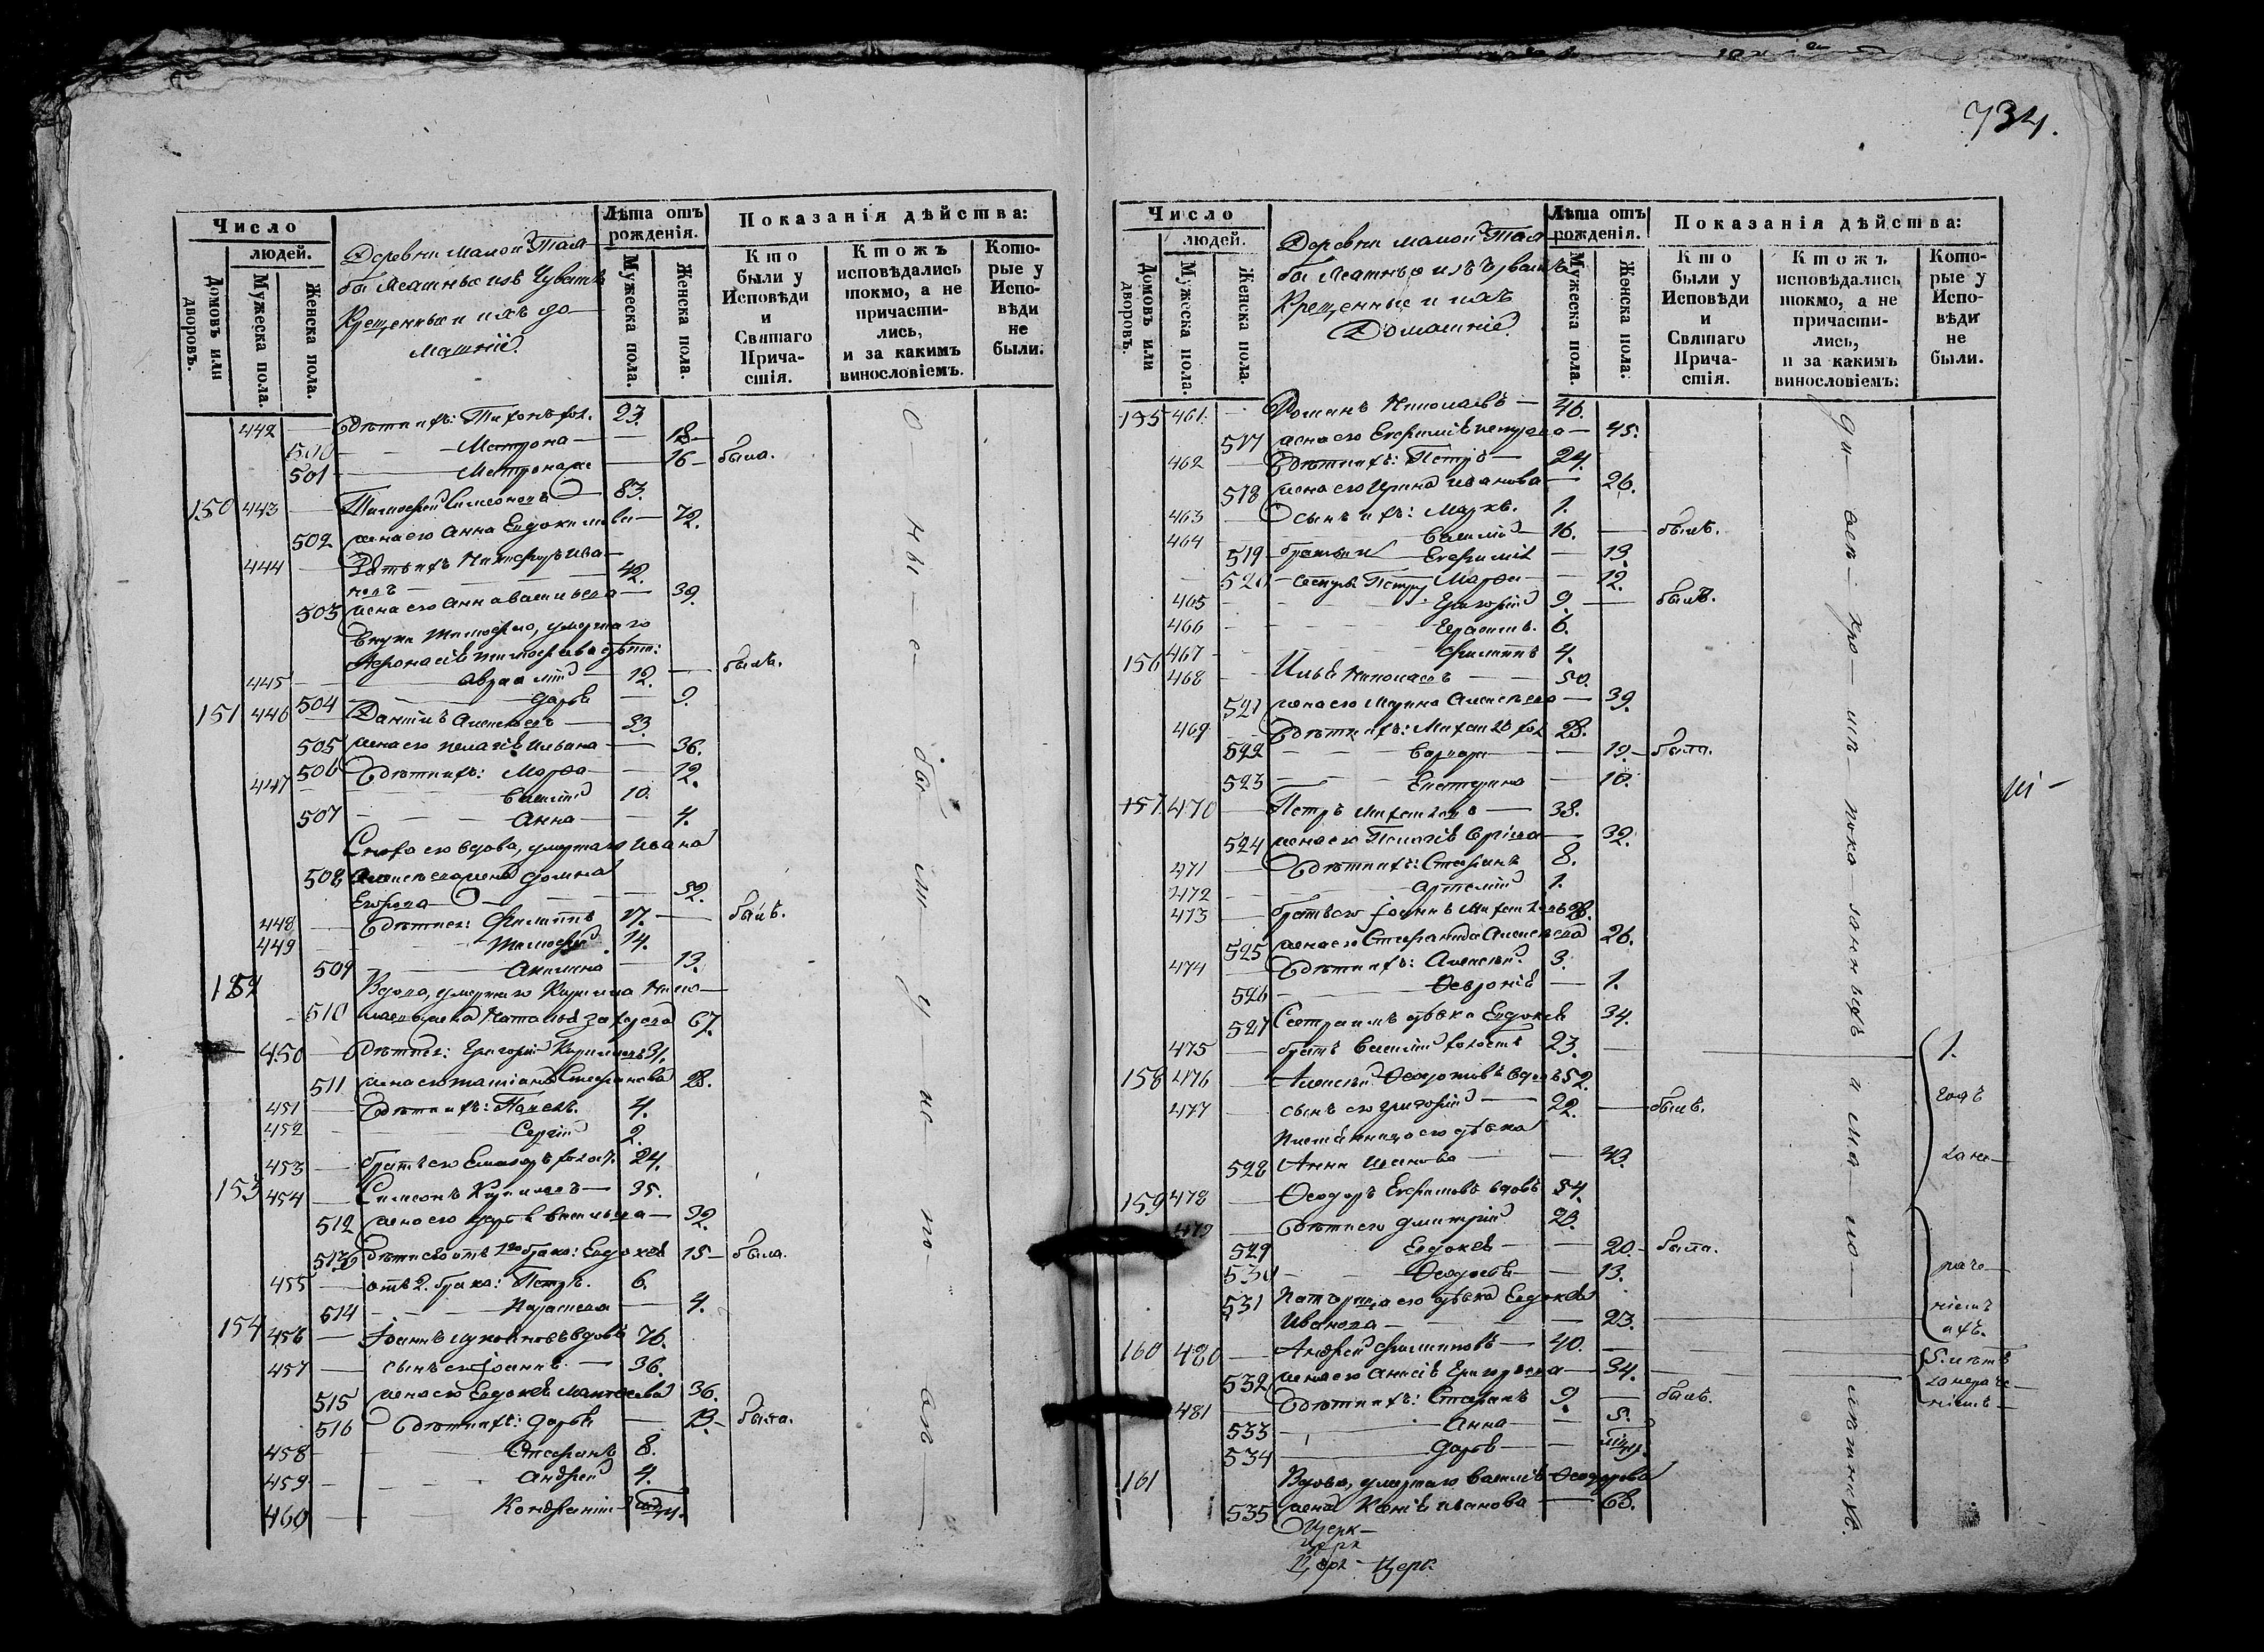 734.
Число
людей.
Домовъ или дворовъ.
Мужеска пола.
Женска пола.
Деревни малой Тая-
бы Ясашные изъ Чувашъ
Крещенные и ихъ до-
машніе.
Лѣта отъ рожденія.
Мужеска пола.
Женска пола.
Показанія дѣйства:
Кто были у Исповѣди и Святаго Причастія.
Ктожъ исповѣдались токмо, а не причастились, и за какимъ винословіемъ.
Которые у Исповѣди не были.
442 — дѣти ихъ: Тихонъ хол. 23.
500 — Матрона — 18 —
501 — Матрона же — 16 — была.
150 443 — Тимофей Симеоновъ 83.
502 жена его Анна Евдокимова — 72.
444 — Зять ихъ Никифоръ Ива-
новъ — 42.
503 жена его Анна Васильева — 39.
Внуки Тимофею, умершаго
Афонасія Тимофеева дѣти:
445 — Авраамій — 12. — былъ.
504 — Дарья — 9.
151 446 — Даніилъ Алексеевъ — 33.
505 жена его Пелагія Ильина — 36.
506 дѣти ихъ: Марфа — 12.
447 — Василій 10.
507 — Анна — 4.
Сноха его вдова, умершаго Ивана
508 Алексеева жена Домна
Егорова — 52.
448 — дѣти ея: Филиппъ 17. — былъ.
449 — Тимофей 14.
509 — Акилина — 13.
152 Вдова, умершаго Кирилла Нико-
510 лаева жена Наталья Захарова 67.
450 — дѣти ея: Григорій Кирилловъ 31.
511 жена его Татіана Стефанова 28.
451 — дѣти ихъ: Павелъ. 4.
452 — Сергій 2.
453 — братъ его Елеазаръ холост. 24.
153 454 — Симеонъ Кирилловъ — 35.
512 жена его Дарья Васильева — 32.
513 дѣти его отъ 1го брака: Евдокія 15 — была.
455 — отъ 2. брака: Петръ. 6.
514 — Параскева — 4.
154 456 — Іоаннъ Лукояновъ вдовъ 76.
457 — сынъ его Іоаннъ — 36.
515 жена его Евдокія Матвѣева 36.
516 — дѣти ихъ: Дарья — 13. — была.
458 — Стефанъ 8.
459 — Андрей 4.
460 — Кондратій
Число
людей.
Домовъ или дворовъ.
Мужеска пола.
Женска пола.
Деревни малой Тая-
бы Ясашные изъ чувашъ
Крещенные и ихъ
Домашніе.
Лѣта отъ рожденія.
Мужеска пола.
Женска пола.
Показанія дѣйства:
Кто были у Исповѣди и Святаго Причастія.
Ктожъ исповѣдались токмо, а не причастились, и за какимъ винословіемъ:
Которые у Исповѣди не были.
155 461. — Романъ Николаевъ — 46.
517 жена его Евфимія — 45.
462 — дѣти ихъ: Петръ — 24.
518 жена его Ирина Иванова — 26.
463 — сынъ ихъ: Маркъ. 1.
464 — Василій — 16. — былъ.
519 братья и Евфимія — 13.
520 — сестры Петру Марфа — 12.
465 — Григорій 9. — былъ.
466 — Герасимъ. 6.
467 — Филиппъ 4.
156 468 — Илья Николаевъ — 50.
521 жена его Марина Алексеева — 39.
469 — дѣти ихъ: Михаилъ хол 28.
522 — Варвара — 19. — была.
523 — Екатерина — 10.
157. 470 — Петръ Михаиловъ — 38.
524 жена его Пелагія — 32.
471 — дѣти ихъ: Стефанъ 8.
472 — Артемій 1.
473 — братъ его Іоаннъ Михаиловъ 28.
525 жена его Стефанида Алексеева 26.
474 — дѣти ихъ: Алексей. 3.
526 — Февронія — 1.
527 Сестра имъ дѣвка Евдокія 34.
475 — братъ Василій холостъ 23.
158 476 — Алексей Феодотовъ вдовъ 52.
477 — сынъ его Григорій — 22. — былъ.
Племянница его дѣвка
528 Анна Иванова — 43.
159 478 — Феодоръ Евфимовъ вдовъ 54.
479 — дѣти его Димитрій 23.
529 Евдокія — 20. — была.
530 — Феодосія — 13.
531 Падчерица его дѣвка Евдокія
Иванова — 23.
160 480 — Андрей Филипповъ — 40.
532 жена его Анисія Григорьева — 34.
481 — дѣти ихъ: Стефанъ 9. — былъ.
533 — Анна — 5.
534 — Дарья —
161 Вдова, умершаго Василія Феодорова
535 жена Ксенія Иванова — 68.
1.
годъ
5. лѣтъ
за нераче-
ніемъ
Церк-
Церк
Церк - Церк.